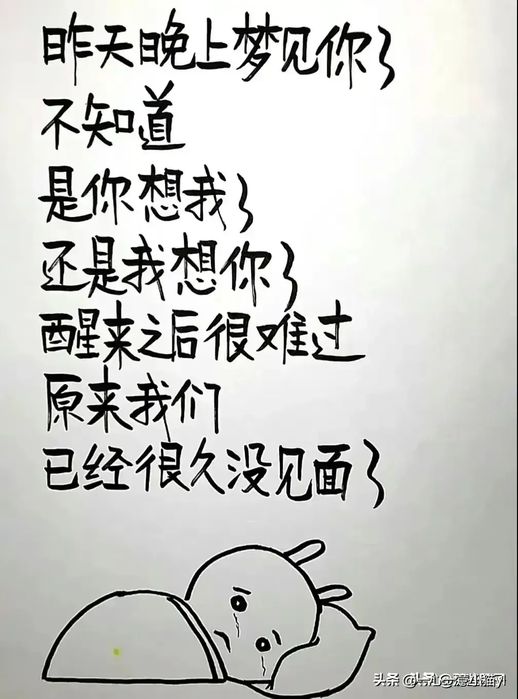 昨天晚上梦见你了
不知道
是你想我了
还是我想你了
醒来之后很难过
原来我们
已经很久没见面了
头条